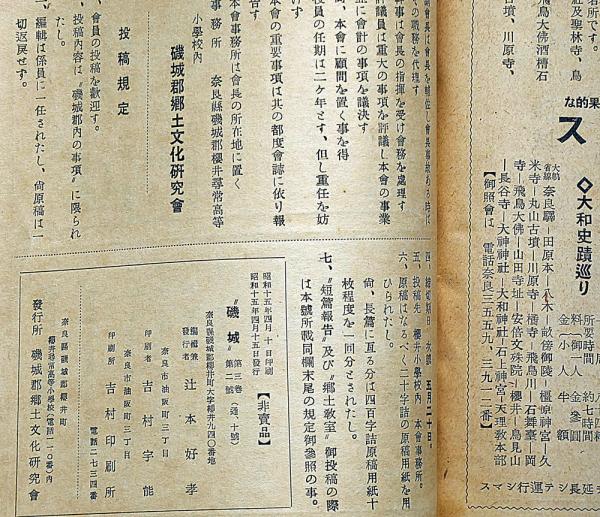 名所です。
社及聖林寺、鳥
飛鳥大佛酒槽石
古墳、川原寺、
果的な
ス
◇大和史蹟巡り
大軌省線 奈良驛―田原本―八木―畝傍御陵―橿原神宮―久
米寺―丸山古墳―川原寺―橘寺―飛鳥川―石舞臺―岡
寺―飛鳥大佛―山田寺址―安倍文殊院―櫻井―鳥見山
―長谷寺―大神神社―大和神社―石上神宮―天理敎本部
【御照會は、電話奈良三五五九、三九一二番】
所要時間 約七時間
料金(御一人)金參圓
小人 半額
延長シテ運行シマス
副會長は會長を輔佐し會長事故ある時は
その職務を代理す
幹事は會長の指揮を受け會務を處理す
評議員は重大の事項を評議し本會の事業
並に會計の事項を議決す
尙、本會に顧問を置く事を得
役員の任期は二ケ年とす、但し重任を妨
げず
本會の重要事項は其の都度會誌に依り報
告す
本會事務所は會長の所在地に置く
事務所 奈良縣磯城郡櫻井尋常高等
小學校內
磯城郡鄕土文化硏究會
投稿規定
一、會員の投稿を歡迎す。
投稿內容は〝磯城郡內の事項〟に限られ
たし。
編輯は係員に一任されたし、尙原稿は一
切返戾せず。
四、締切期日 次號 五月二十日。
五、投稿先 櫻井小學校內 本會事務所。
六、原稿はなるべく二十字詰の原稿用紙を用
ひられたし。
尙、長篇に亙る分は四百字詰原稿用紙十
枚程度を一回分とされたし。
七、〝短篇報告〟及び〝鄕土敎室〟御投稿の際
は本號所載同欄末尾の規定御參照の事。
昭和十五年四月十日印刷
昭和十五年四月十五日發行
【非賣品】
〝磯城〟 第三卷 第二號 (通、十號)
奈良縣磯城郡櫻井町大字櫻井九四〇番地
編輯兼發行者 辻本好孝
奈良市油阪町三丁目
印刷者 吉村宇能
奈良市油阪町三丁目
印刷所 吉村印刷所
電話 二七三四番
奈良縣磯城郡櫻井町
櫻井尋常高等小學校(電話一一〇番)內
發行所 磯城郡鄕土文化硏究會